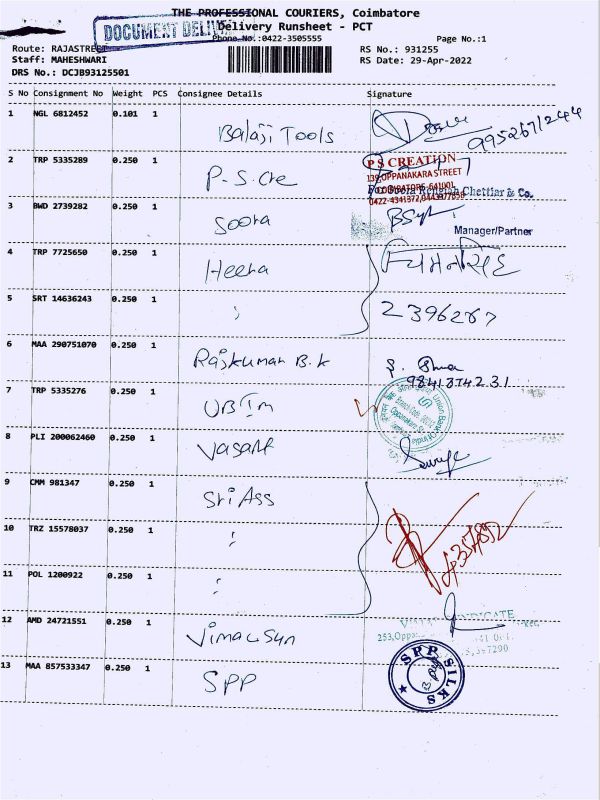 THE PROFESSIONAL COURIERS, Coimbatore
DOCUMENT
Delivery Runsheet - PCT
Phone No.:0422-3505555
Page No.:1
Route: RAJASTREET
RS No.: 931255
Staff: MAHESHWARI
RS Date: 29-Apr-2022
DRS No.: DCJB93125501
S No Consignment No Weight PCS Consignee Details Signature
1 NGL 6812452 0.101 1 Balaji Tools
2 TRP 5335289 0.250 1 P-S-Cre
P S CREATION
139, OPPANAKARA STREET
COIMBATORE-641001
Chettiar & Co.
3 BWD 2739282 0.250 1 Soora
Manager/Partner
4 TRP 7725650 0.250 1 Heera
5 SRT 14636243 0.250 1 2396267
6 MAA 290751070 0.250 1 Rajkumar B.K
7 TRP 5335276 0.250 1 UBIm
Union Bank of India
8 PLI 200062460 0.250 1 Vasant
9 CMM 981347 0.250 1 Sri Ass
10 TRZ 15578037 0.250 1
11 POL 1200922 0.250 1
12 AMD 24721551 0.250 1 Vimal Syn
13 MAA 857533347 0.250 1 SPP
SPP SILKS